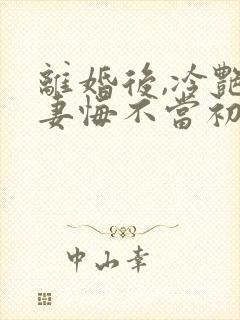 離婚後,冷艷
妻悔不當初
中山幸